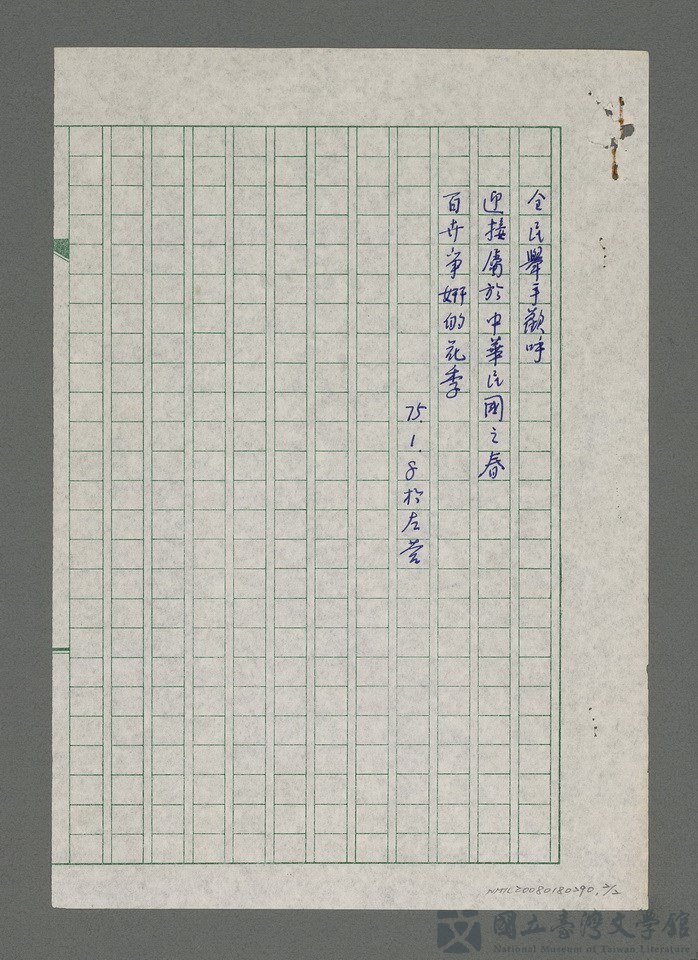 全民舉手歡呼
迎接屬於中華民國之春
百卉爭妍的花季
75.1.8於左營
NMTL20080180390, 2/2
國立臺灣文學館
National Museum of Taiwan Literature